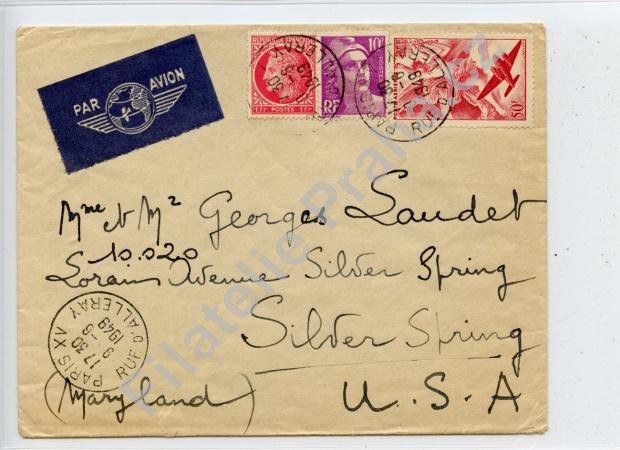 PAR AVION
REPUBLIQUE FRANÇAISE
1F POSTES 1F
10F
RF
50F
PARIS XV
17 30
9 -6
1949
RUE D'ALLERAY
Mme et Mr Georges Laudet
10.020
Lorain Avenue Silver Spring
Silver Spring
(Maryland) U.S.A
Filatelie Praha